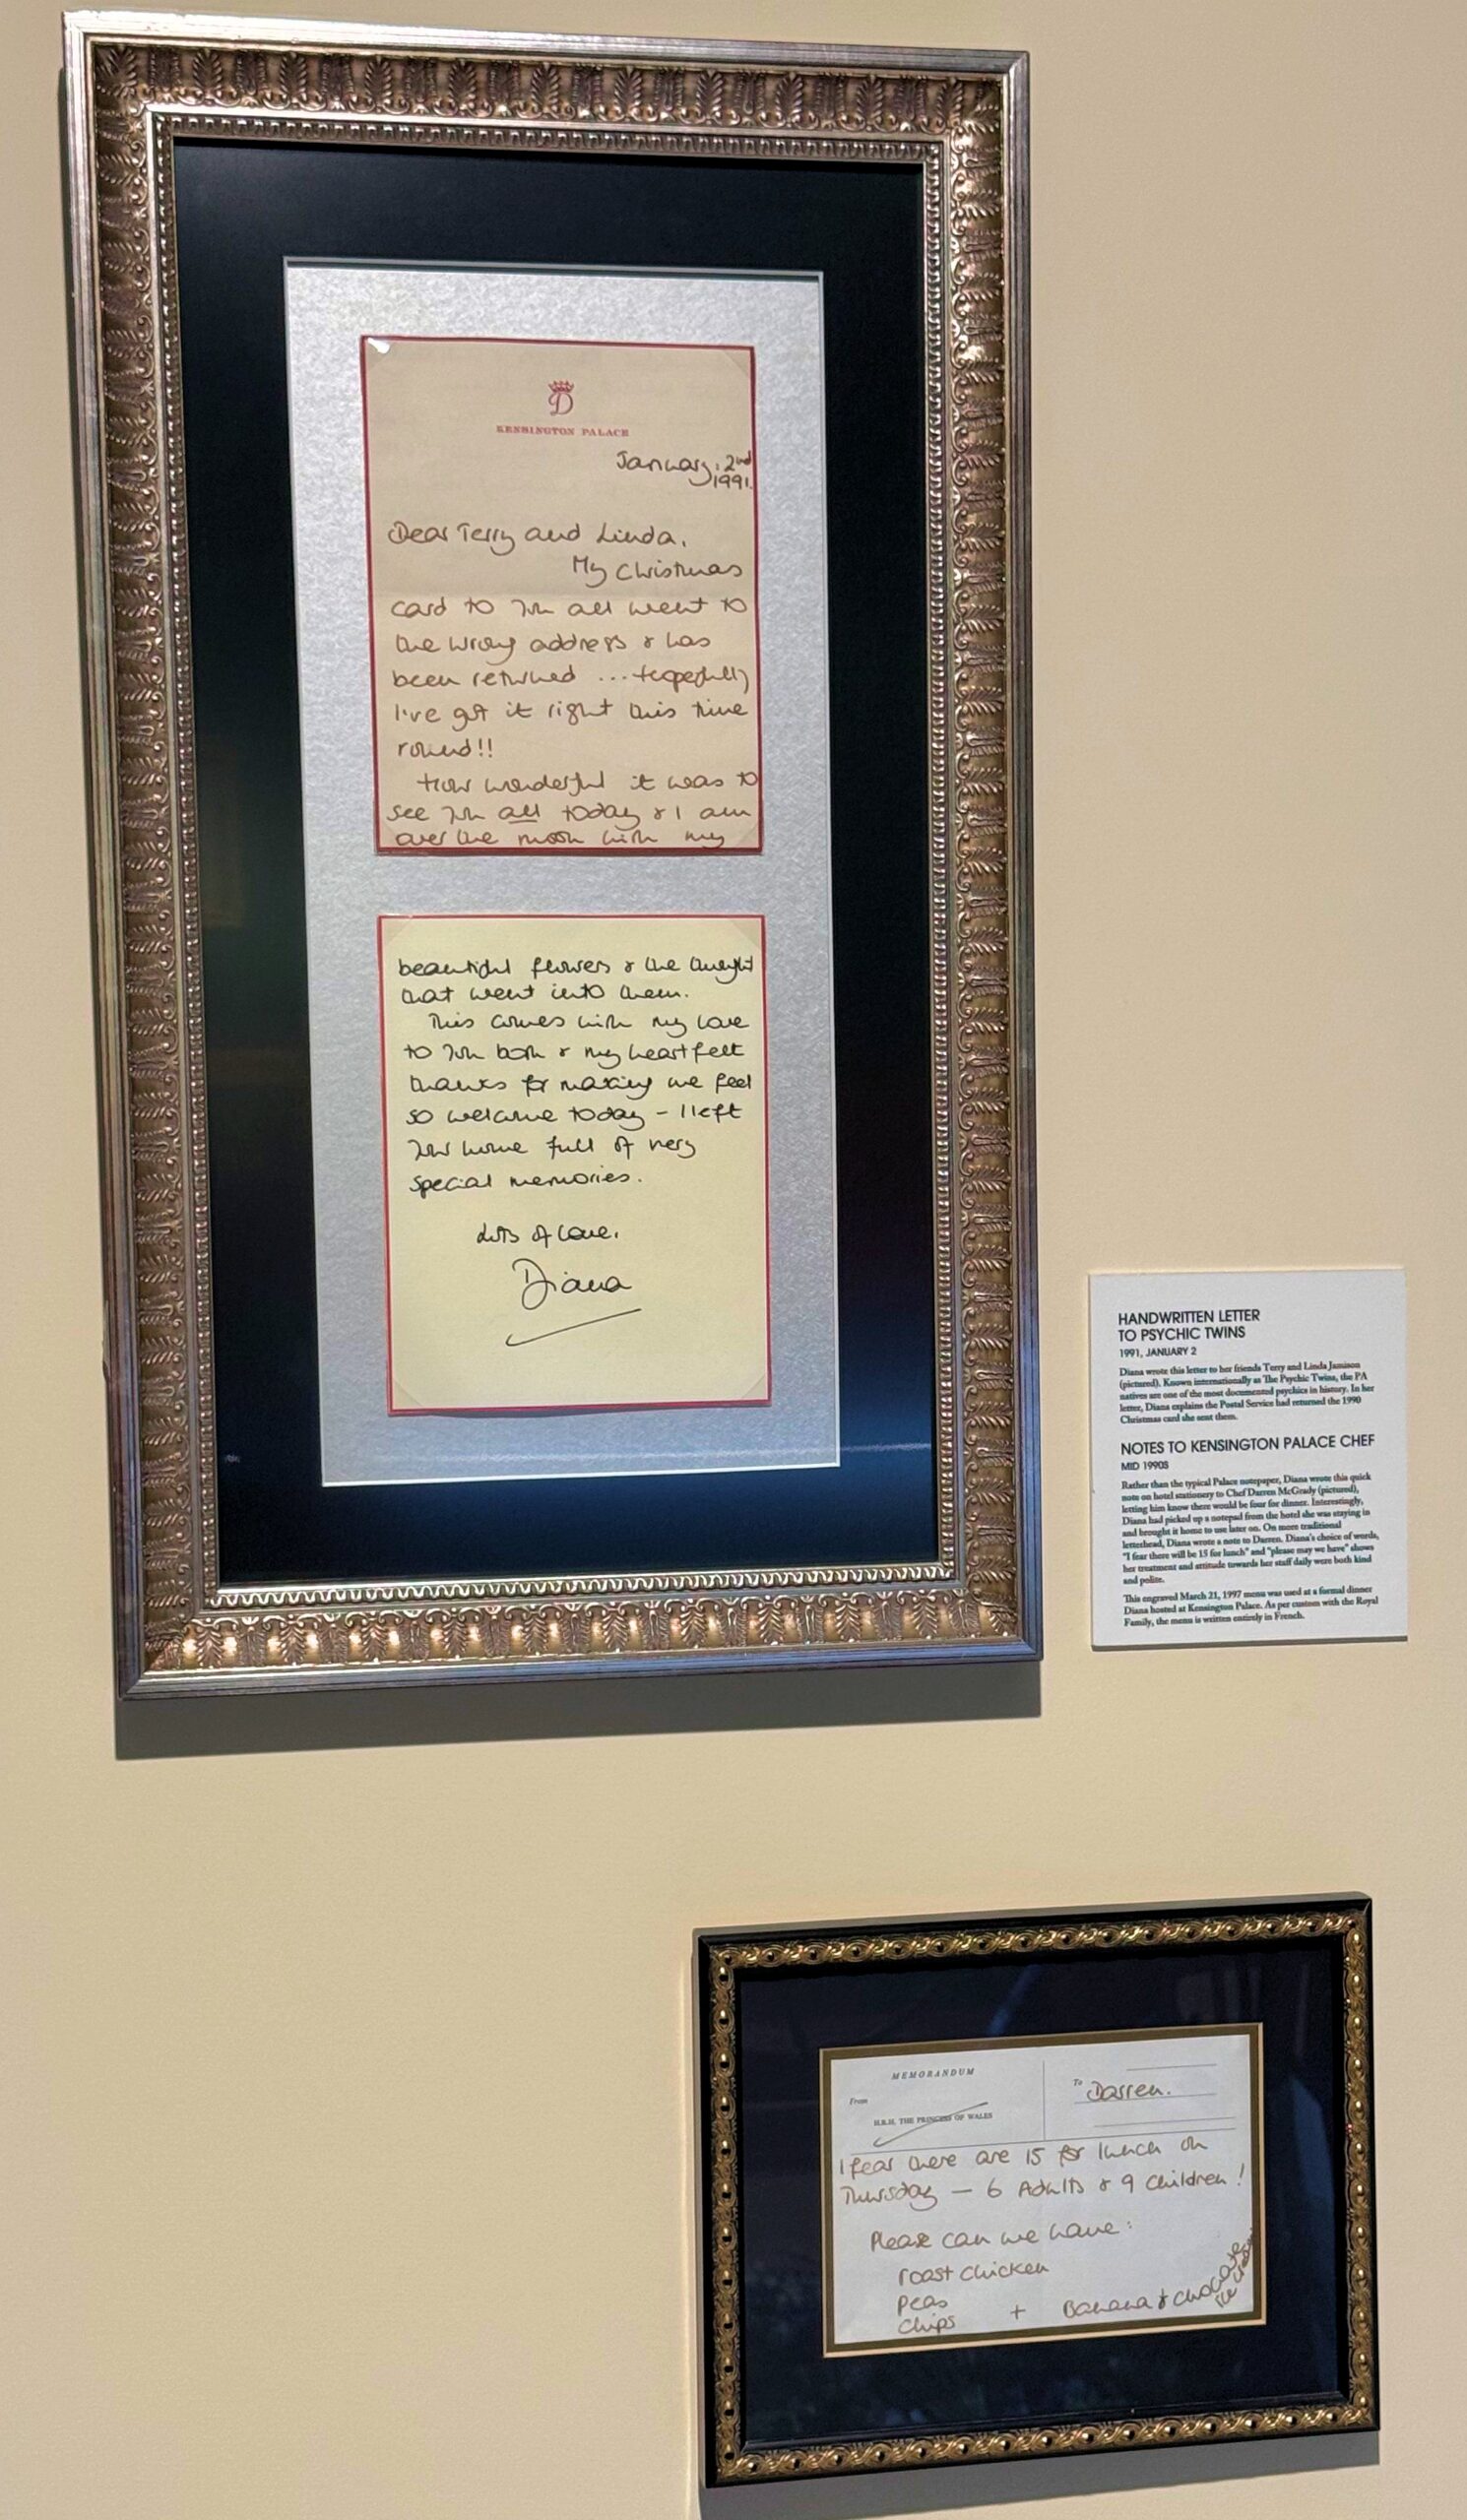 D
KENSINGTON PALACE
January. 2nd
1991.
Dear Terry and Linda,
My Christmas
card to you all went to
the wrong address & has
been returned ... hopefully
I've got it right this time
round!!
How wonderful it was to
see you all today & I am
over the moon with my
beautiful flowers & the thought
that went into them.
This comes with my love
to you both & my heartfelt
thanks for making me feel
so welcome today - I left
your home full of very
special memories.
Lots of love,
Diana
HANDWRITTEN LETTER
TO PSYCHIC TWINS
1991, JANUARY 2
Diana wrote this letter to her friends Terry and Linda Jamison
(pictured). Known internationally as The Psychic Twins, the PA
natives are one of the most documented psychics in history. In her
letter, Diana explains the Postal Service had returned the 1990
Christmas card she sent them.
NOTES TO KENSINGTON PALACE CHEF
MID 1990S
Rather than the typical Palace notepaper, Diana wrote this quick
note on hotel stationery to Chef Darren McGrady (pictured),
letting him know there would be four for dinner. Interestingly,
Diana had picked up a notepad from the hotel she was staying in
and brought it home to use later on. On more traditional
letterhead, Diana wrote a note to Darren. Diana's choice of words,
"I fear there will be 15 for lunch" and "please may we have" shows
her treatment and attitude towards her staff daily were both kind
and polite.
This engraved March 21, 1997 menu was used at a formal dinner
Diana hosted at Kensington Palace. As per custom with the Royal
Family, the menu is written entirely in French.
MEMORANDUM
From
H.R.H. THE PRINCESS OF WALES
To Darren.
I fear there are 15 for lunch on
Thursday - 6 Adults & 9 children!
Please can we have:
roast chicken
peas
chips + Banana & chocolate ice cream